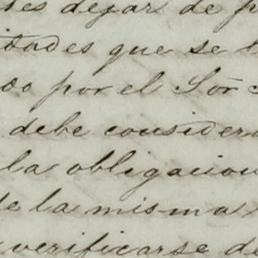 ses dejar de p
idades que se t
do por el Sor
debe consider
la obligacion
de la misma
verificarse de